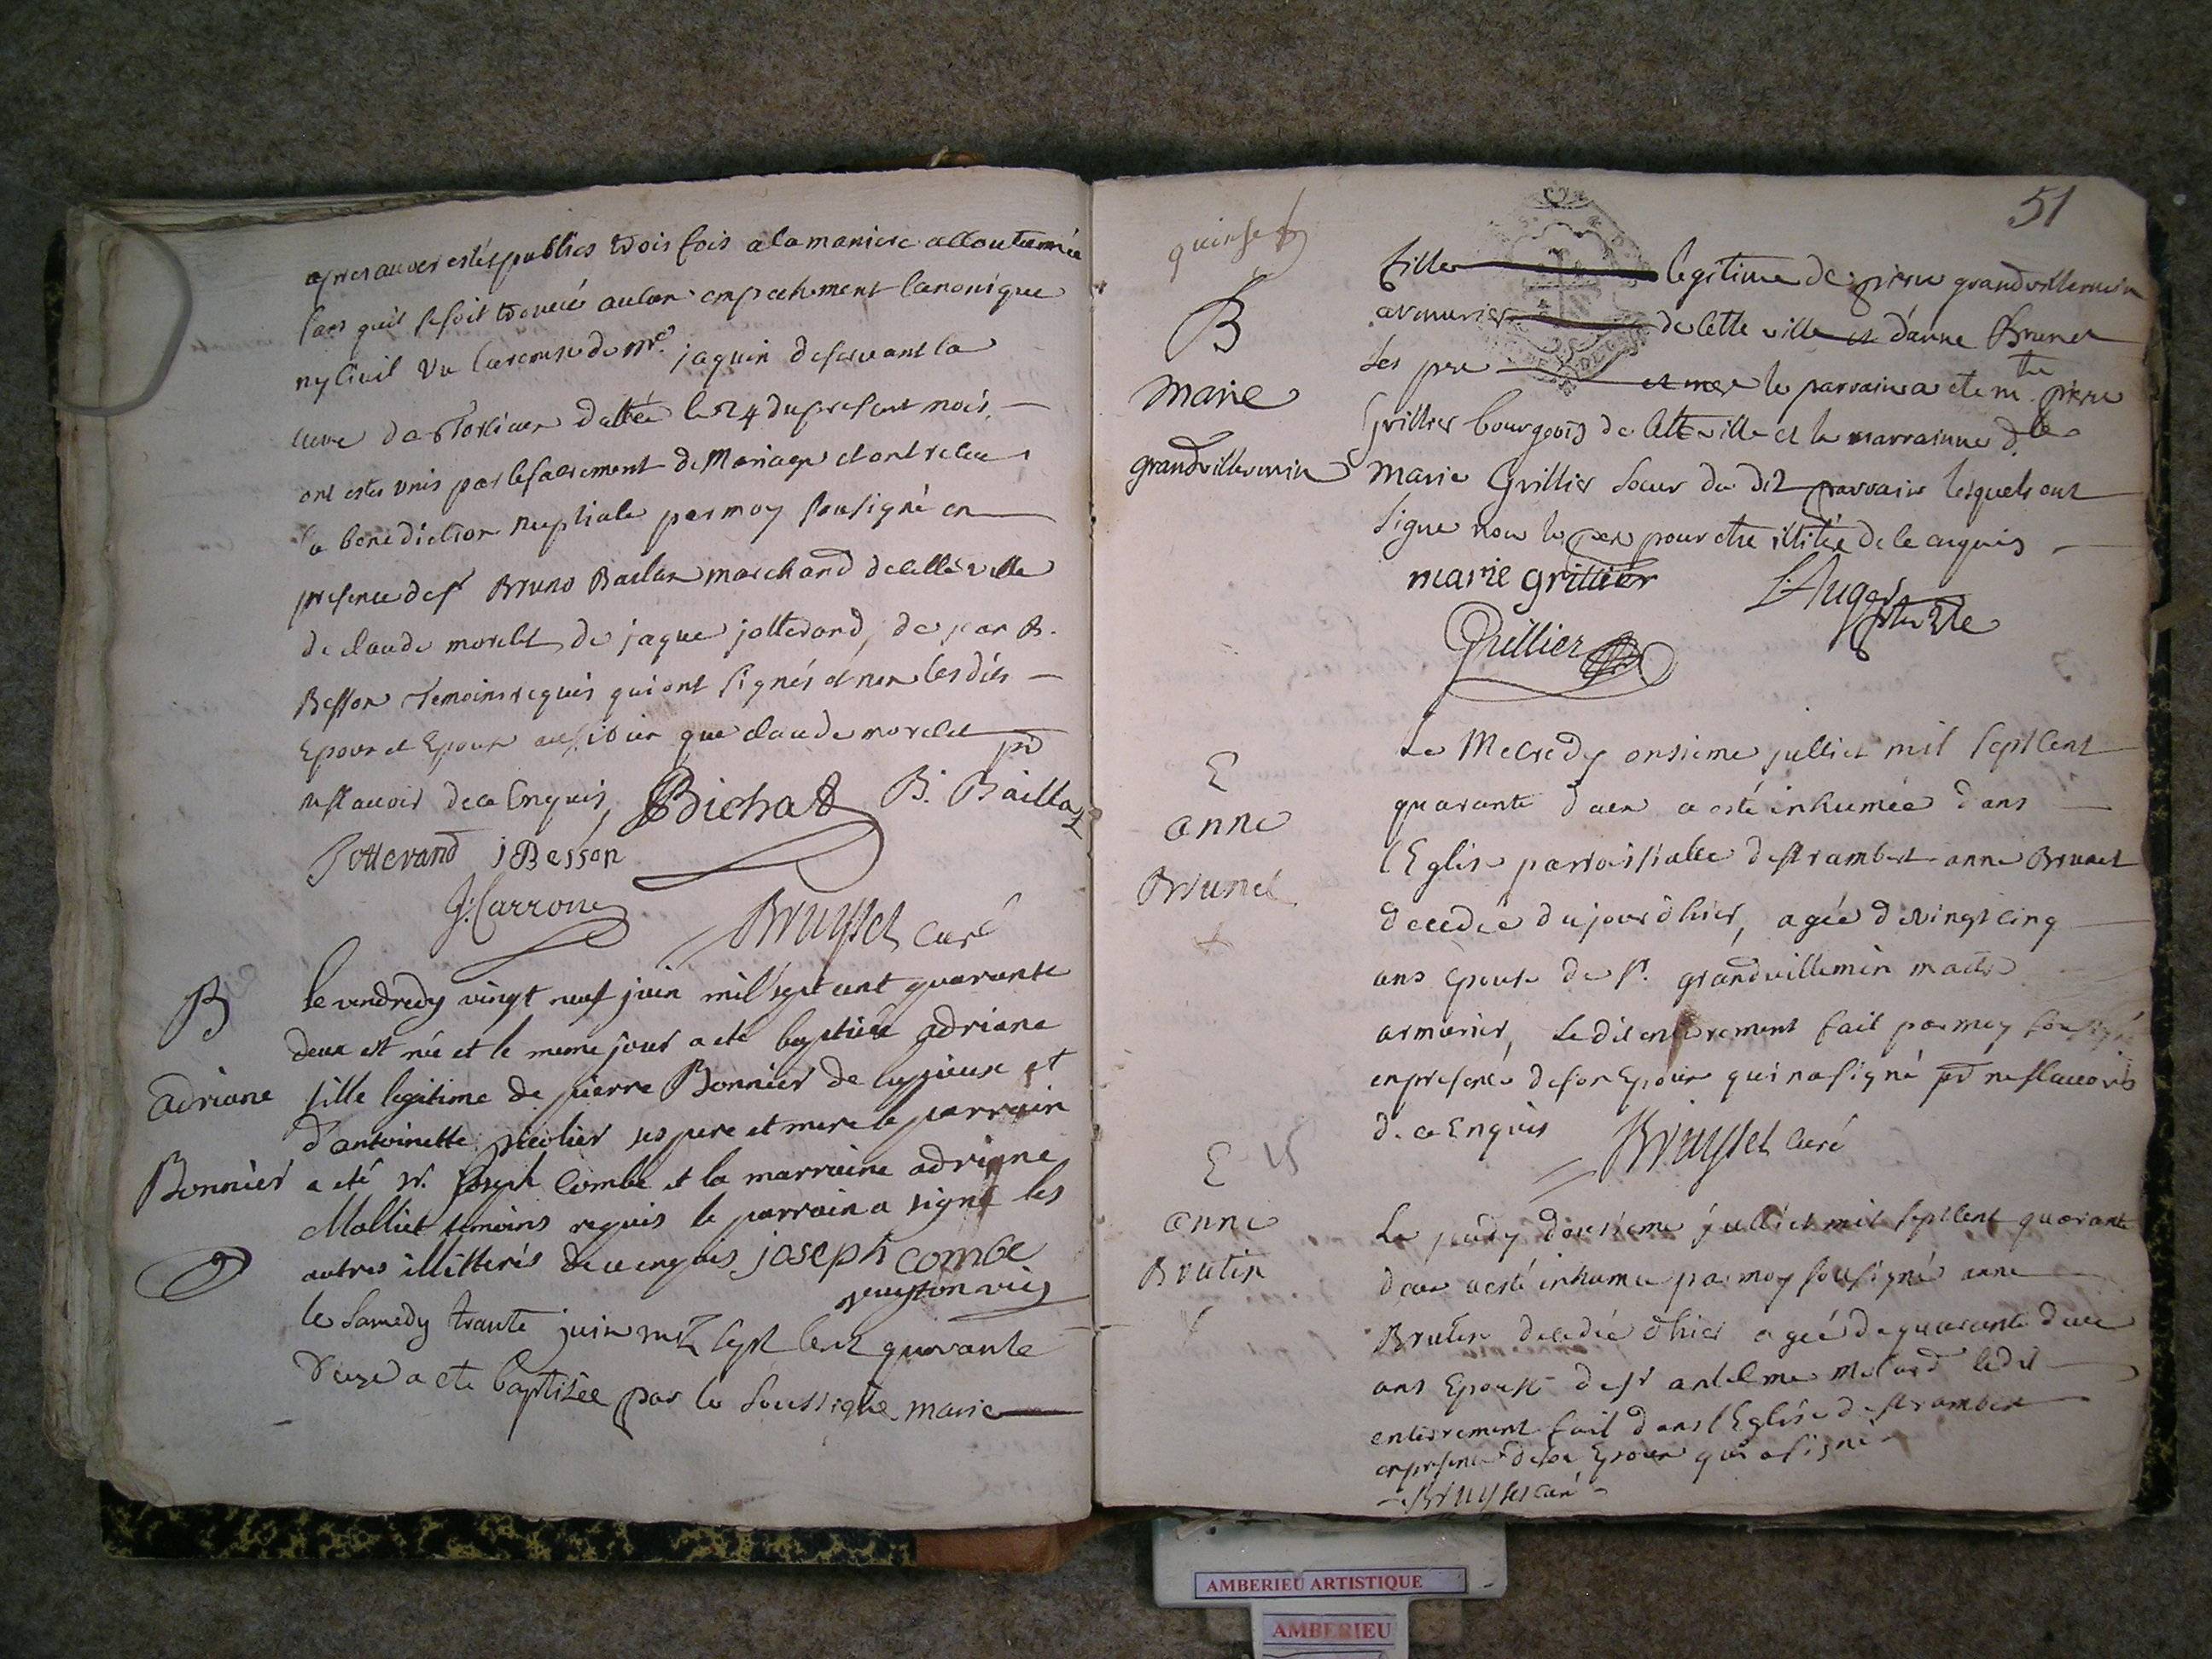 apres auoir estés publies trois fois a la maniere accoutumée
sans quil se soit trouué aucun empechement canonique
ny ciuil vu la remise de mre. jaquin desseruant la
cure de Torcieu dattée le 24 du present mois
ont estes unis par le sacrement de Mariage et ont receu
la benediction nuptiale par moy sousigné en
presence de sr Bruno Baillat marchand de cette ville
de claude morelet de jaque jotterand, de jean B.
Besson temoins requis qui ont signés et non les dits
Epoux et Epouse aussi bien que claude morelet pr
ne sauoir de ce Enquis, Bichat B. Baillat
Jotterand j Besson
J: Carron
Bruyset curé
B
Adriane
Bonnier
le vendredy vingt neuf juin mil sept cent quarante
deux est née et le meme jour a eté baptisée adriane
fille legitime de pierre Bonnier de et
d'antoinette nicolier ses pere et mere le parrain
a eté Sr. joseph Combe et la marraine adriane
Molliet temoins requis le parrain a signé les
autres illitterés de ce enquis joseph combe
le Samedy trante juin mil sept cent quarante
deux a ete baptisée par le soussigne marie
51
quinse
B
Marie
grandvillemin
fille legitime de pierre grandvillemin
armurier de cette ville et d'anne Brunet
ses pere et mere le parrain a ete mtre pierre
Grillier bourgeois de cette ville et la marrainne dlle
Marie Grillier soeur du dit parrain lesquels ont
signe non le pere pour etre illitéré de ce enquis
marie grillier
L: Auger
ptre Vre
Grillier
E
anne
Brunet
Le Mecredy onsieme julliet mil sept cent
quarante deux a esté inhumée dans
l'Eglise parroissialle de st rambert anne Brunet
decedée du jour d'hier, agée de vingt cinq
ans epouse de sr. grandvillemin maitre
armurier, Le dit enterrement fait par moy sousigné
en presence de son Epoux qui n a signé pr ne sauoir
de ce Enquis Bruyset curé
E 15
anne
Brutin
Le jeudy dousieme julliet mil sept cent quarante
deux a esté inhumée par moy sousigné anne
Brutin decedée d'hier agée de quarante deux
ans Epouse de sr antelme le dit
enterrement fait dans l'Eglise de st rambert
en presence de son Epoux qui a signé
Bruyset curé
AMBERIEU ARTISTIQUE
AMBERIEU